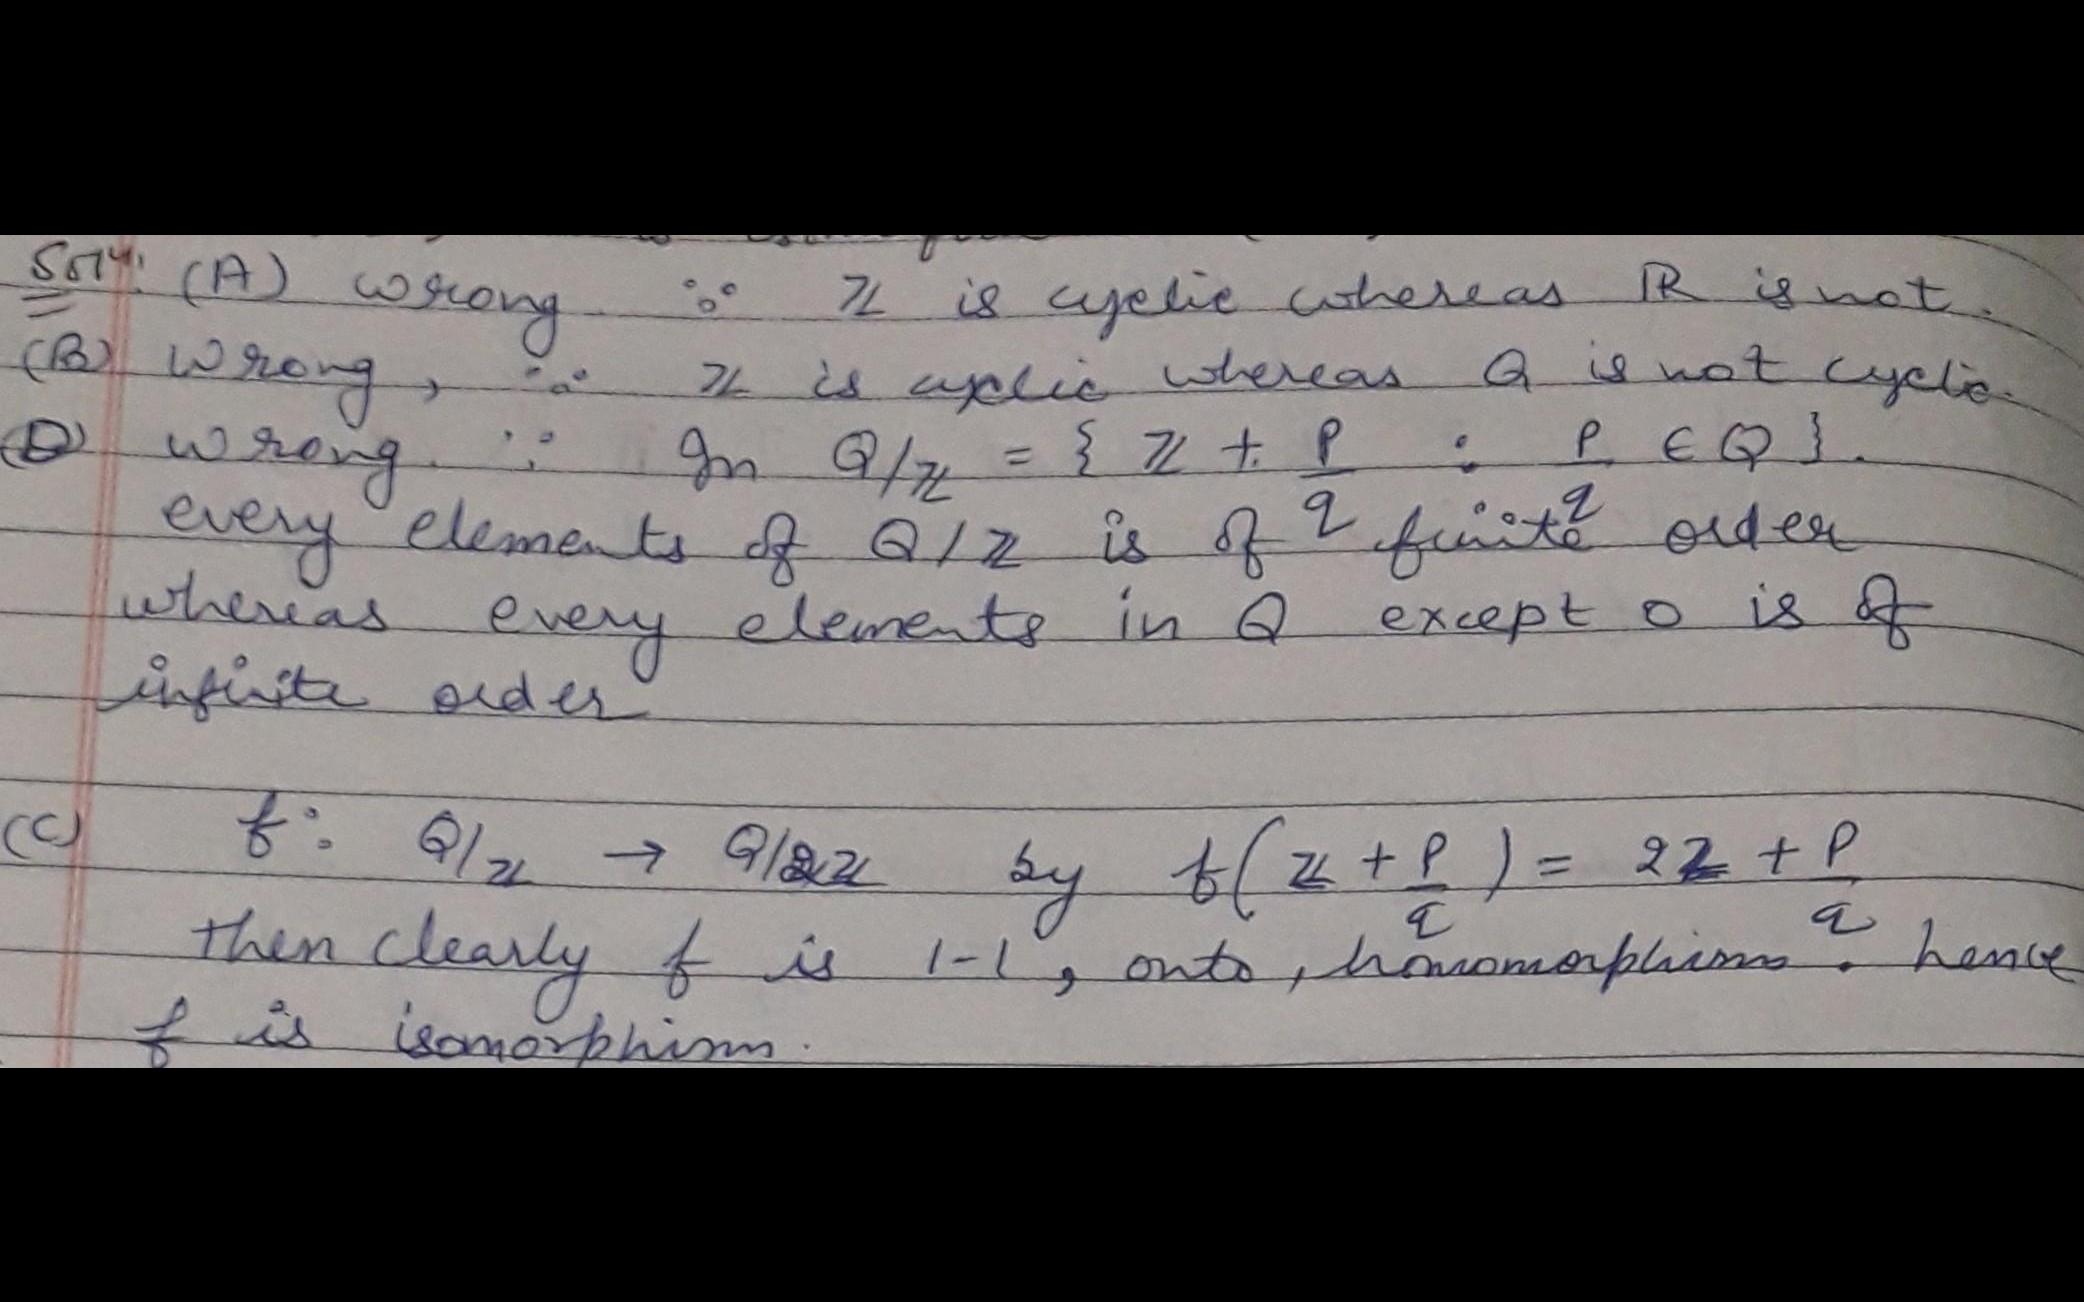 Sol4: (A) wrong. ∵ ℤ is cyclic whereas ℝ is not.
(B) wrong, ∵ ℤ is cyclic whereas Q is not cyclic.
(D) wrong. ∵ In Q/ℤ = { ℤ + p/q : p/q ∈ Q }.
every elements of Q/ℤ is of finite order
whereas every elements in Q except 0 is of
infinite order
(C) f: Q/ℤ → Q/2ℤ by f(ℤ + p/q) = 2ℤ + p/q
then clearly f is 1-1, onto, homomorphism. hence
f is isomorphism.